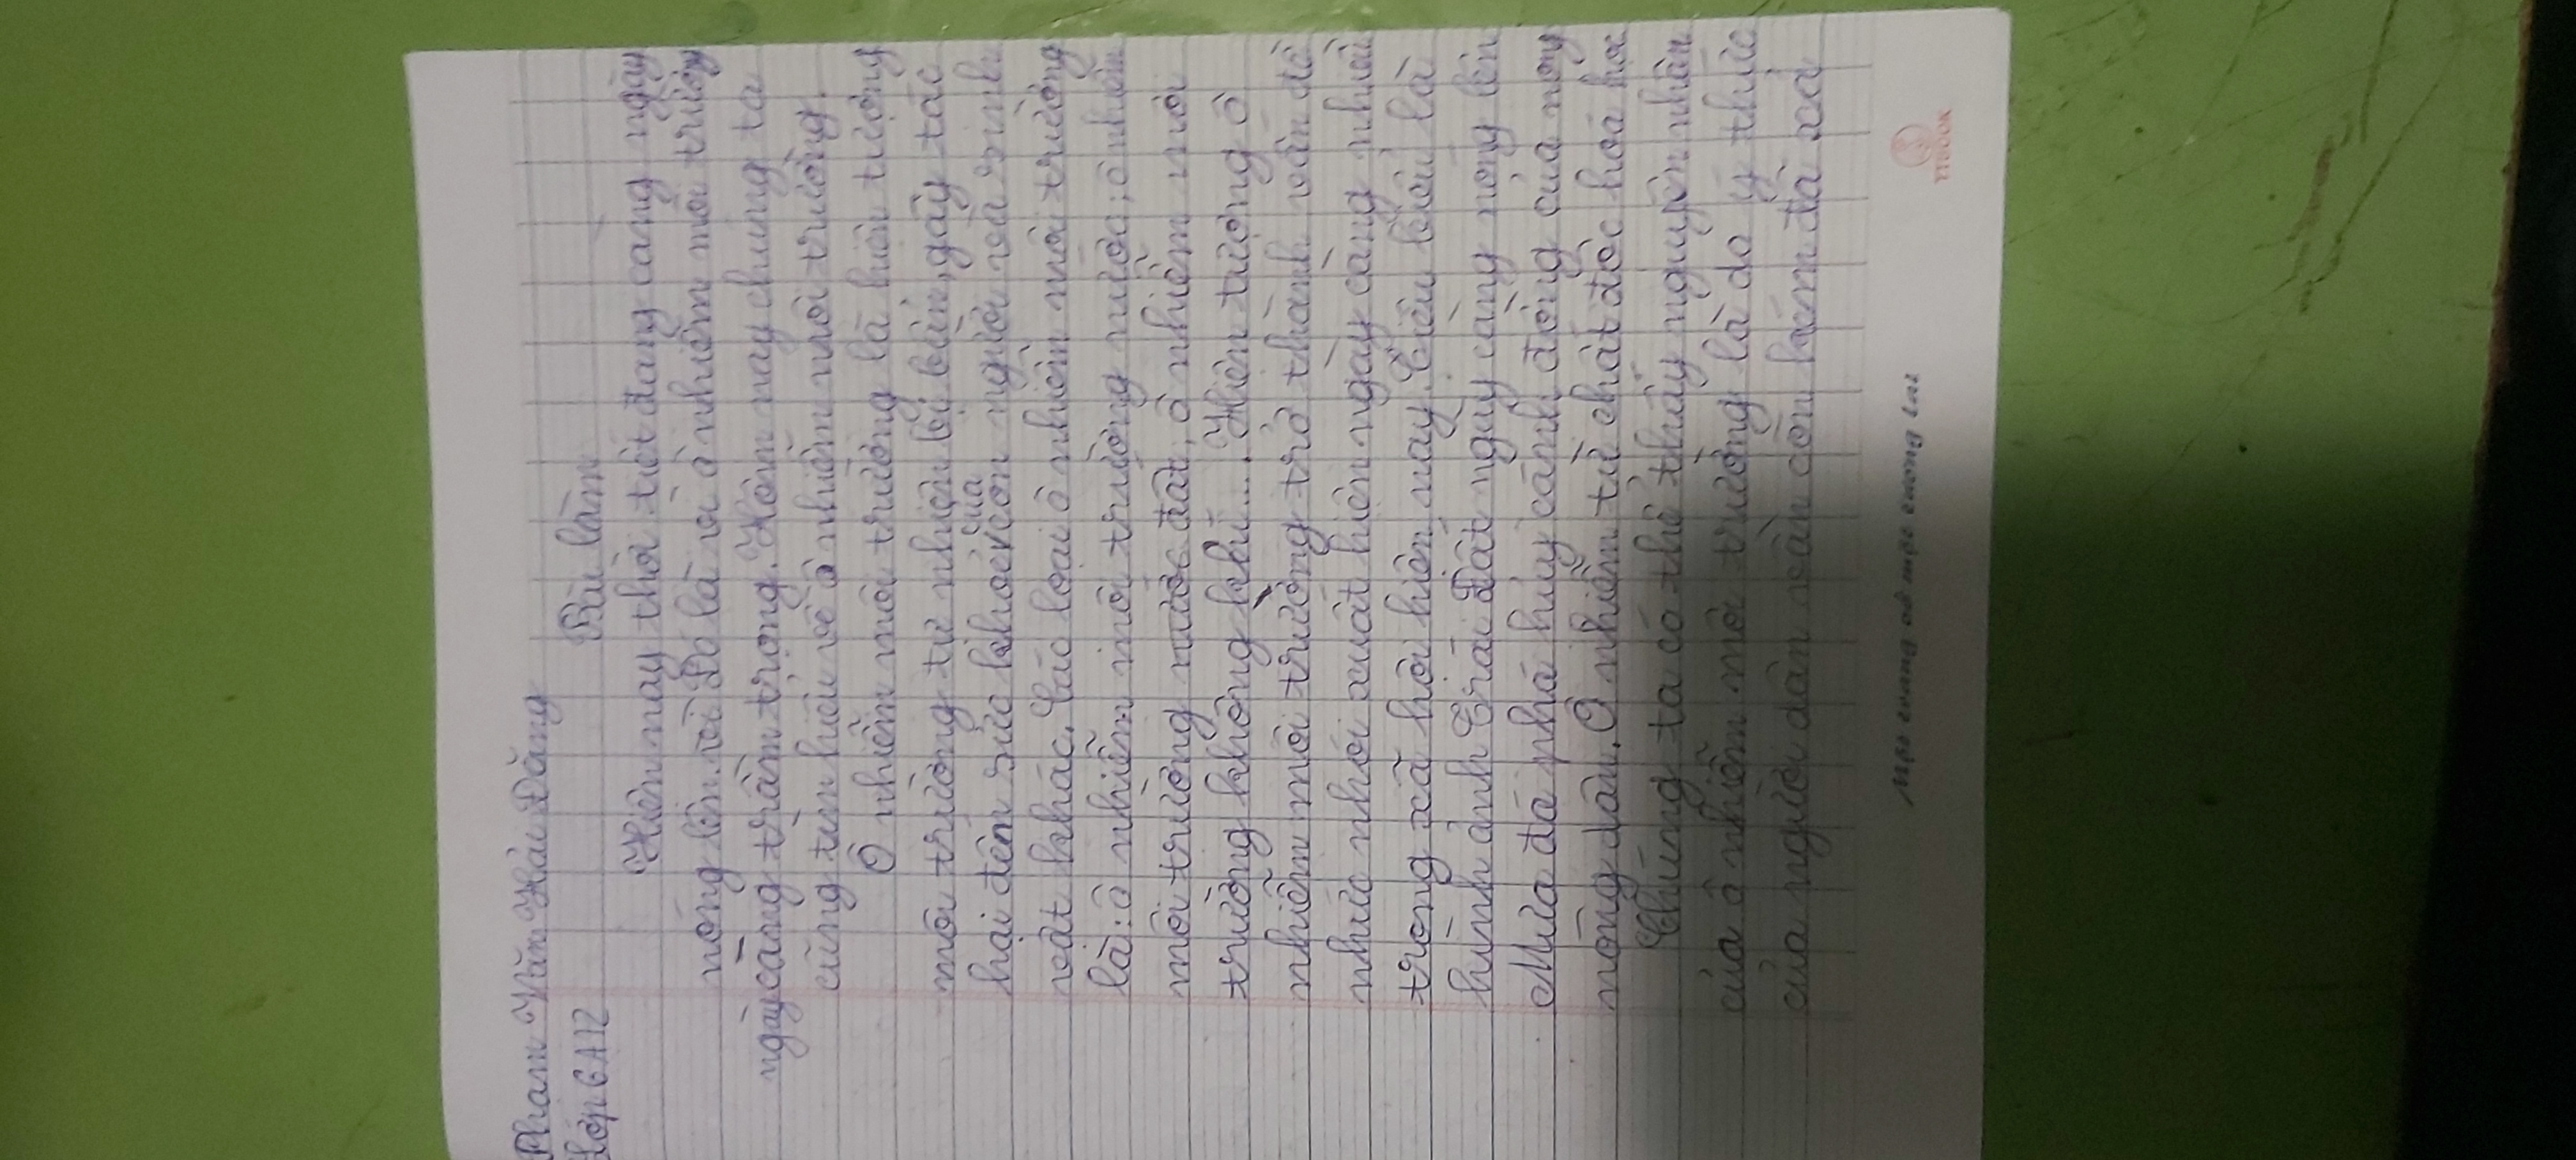 Phạm Văn Hải Đăng
Lớp 6A12 Bài làm
Hiện nay thời tiết đang càng ngày
nóng lên. rồi Đó là vì ô nhiễm môi trường
ngày càng trầm trọng. Hôm nay chúng ta
cùng tìm hiểu về ô nhiễm môi trường.
Ô nhiễm môi trường là hiện tượng
môi trường tự nhiên bị bẩn, gây tác
hại đến sức khoẻ của con người và sinh
vật khác. Các loại ô nhiễm môi trường
là: ô nhiễm môi trường nước, ô nhiễm
môi trường nước đất, ô nhiễm môi
trường không khí.... Hiện tượng ô
nhiễm môi trường trở thành vấn đề
nhức nhối xuất hiện ngày càng nhiều
trong xã hội hiện nay. Tiêu biểu là
hình ảnh Trái Đất ngày càng nóng lên
Mưa đá phá hủy cánh đồng của nong
nông dân. Ô nhiễm từ chất độc hoá học
Chúng ta có thể thấy nguyên nhân
của ô nhiễm môi trường là do ý thức
của người dân vẫn còn kém đã xả
YTBOOK